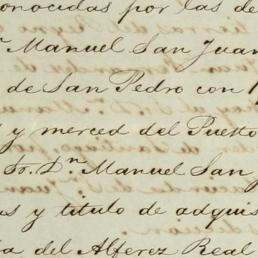 onocidas por las de
n Manuel San Juan
de San Pedro con
y merced del Puerto
Dn. Manuel San
as y titulo de adquis
ia del Alferez Real